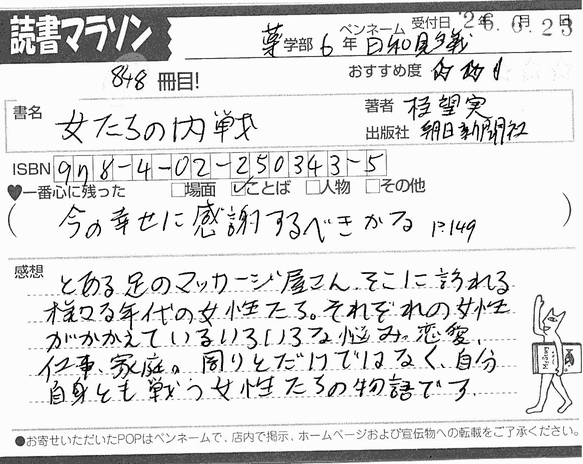 読書マラソン
ペンネーム 受付日 '26.6.23
薬学部6年 日和見主義
848冊目!
おすすめ度
書名 女たちの内戦
著者 桂望実
出版社 朝日新聞社
ISBN 978-4-02-250343-5
♥一番心に残った □場面 ☑ことば □人物 □その他
(今の幸せに感謝するべきかな P.149)
感想
とある足のマッサージ屋さん、そこに訪れる
様々な年代の女性たち。それぞれの女性
がかかえているいろいろな悩み。恋愛、
仕事、家庭。周りとだけではなく、自分
自身とも戦う女性たちの物語です。
●お寄せいただいたPOPはペンネームで、店内で掲示、ホームページおよび宣伝物への転載をご了承ください。